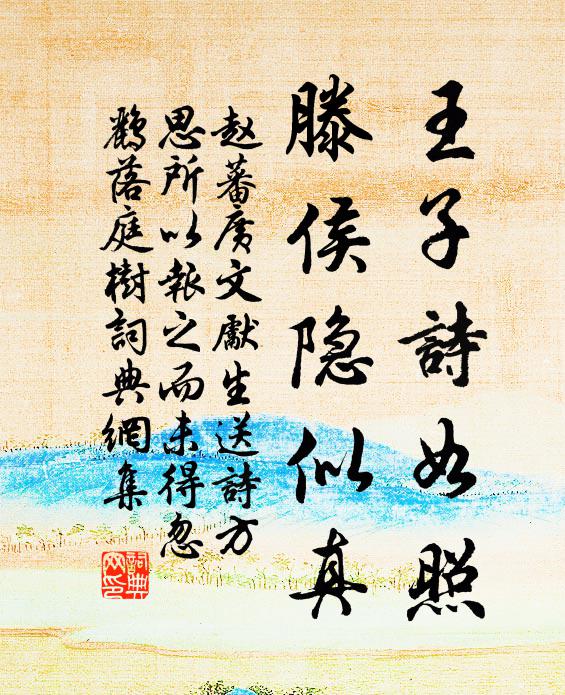 王子詩如照
滕侯隐似真
赵蕃廣文獻生送詩方
思所以報之而未得忽
鵲落庭樹詞典網集
詞典